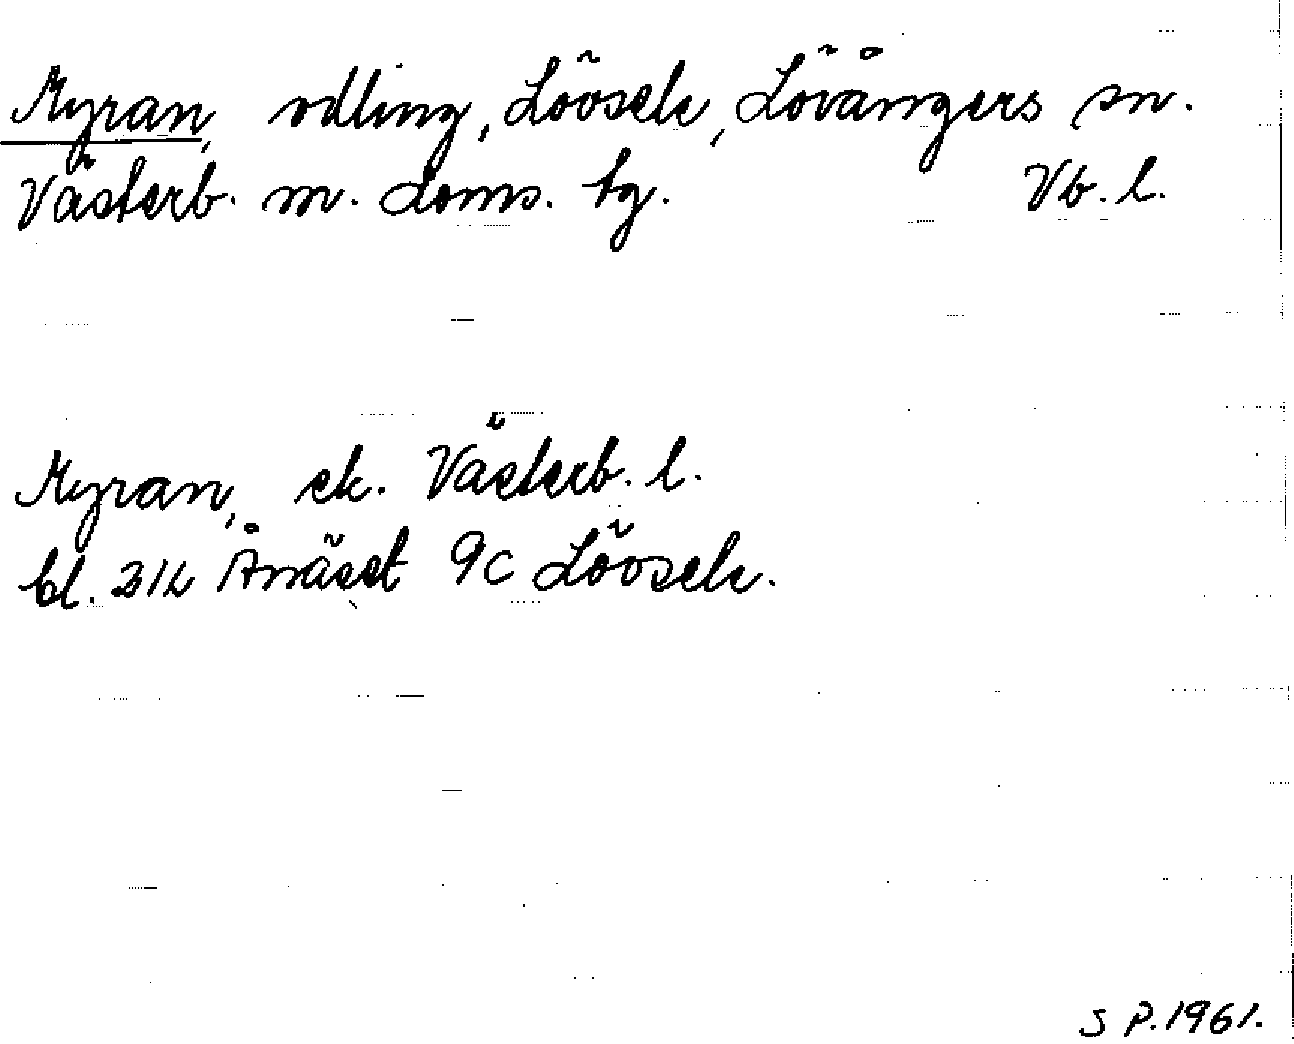 Myran, odling, Lövsele, Lövångers sn.
Västerb. m. doms. tg. Vb. l.
Myran, ek. Västerb. l.
bl. 21L Ånäset 9c Lövsele.
S P. 1961.